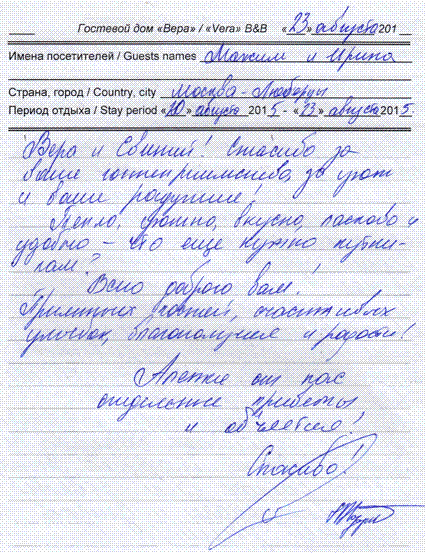 Гостевой дом «Вера» / «Vera» B&B «23» августа 201
Имена посетителей / Guests names Максим и Ирина
Страна, город / Country, city Москва - Люберцы
Период отдыха / Stay period «20» августа 2015 - «23» августа 2015.
Вера и Евгений! Спасибо за
ваше гостеприимство, за уют
и ваше радушие!
Тепло, уютно, вкусно, ласково и
удобно – что еще нужно путни-
кам?
Всего доброго вам!
Приятных гостей, счастливых
улыбок, благополучия и радости!
от нас
отдельные приветы
и объятия!
Спасибо!